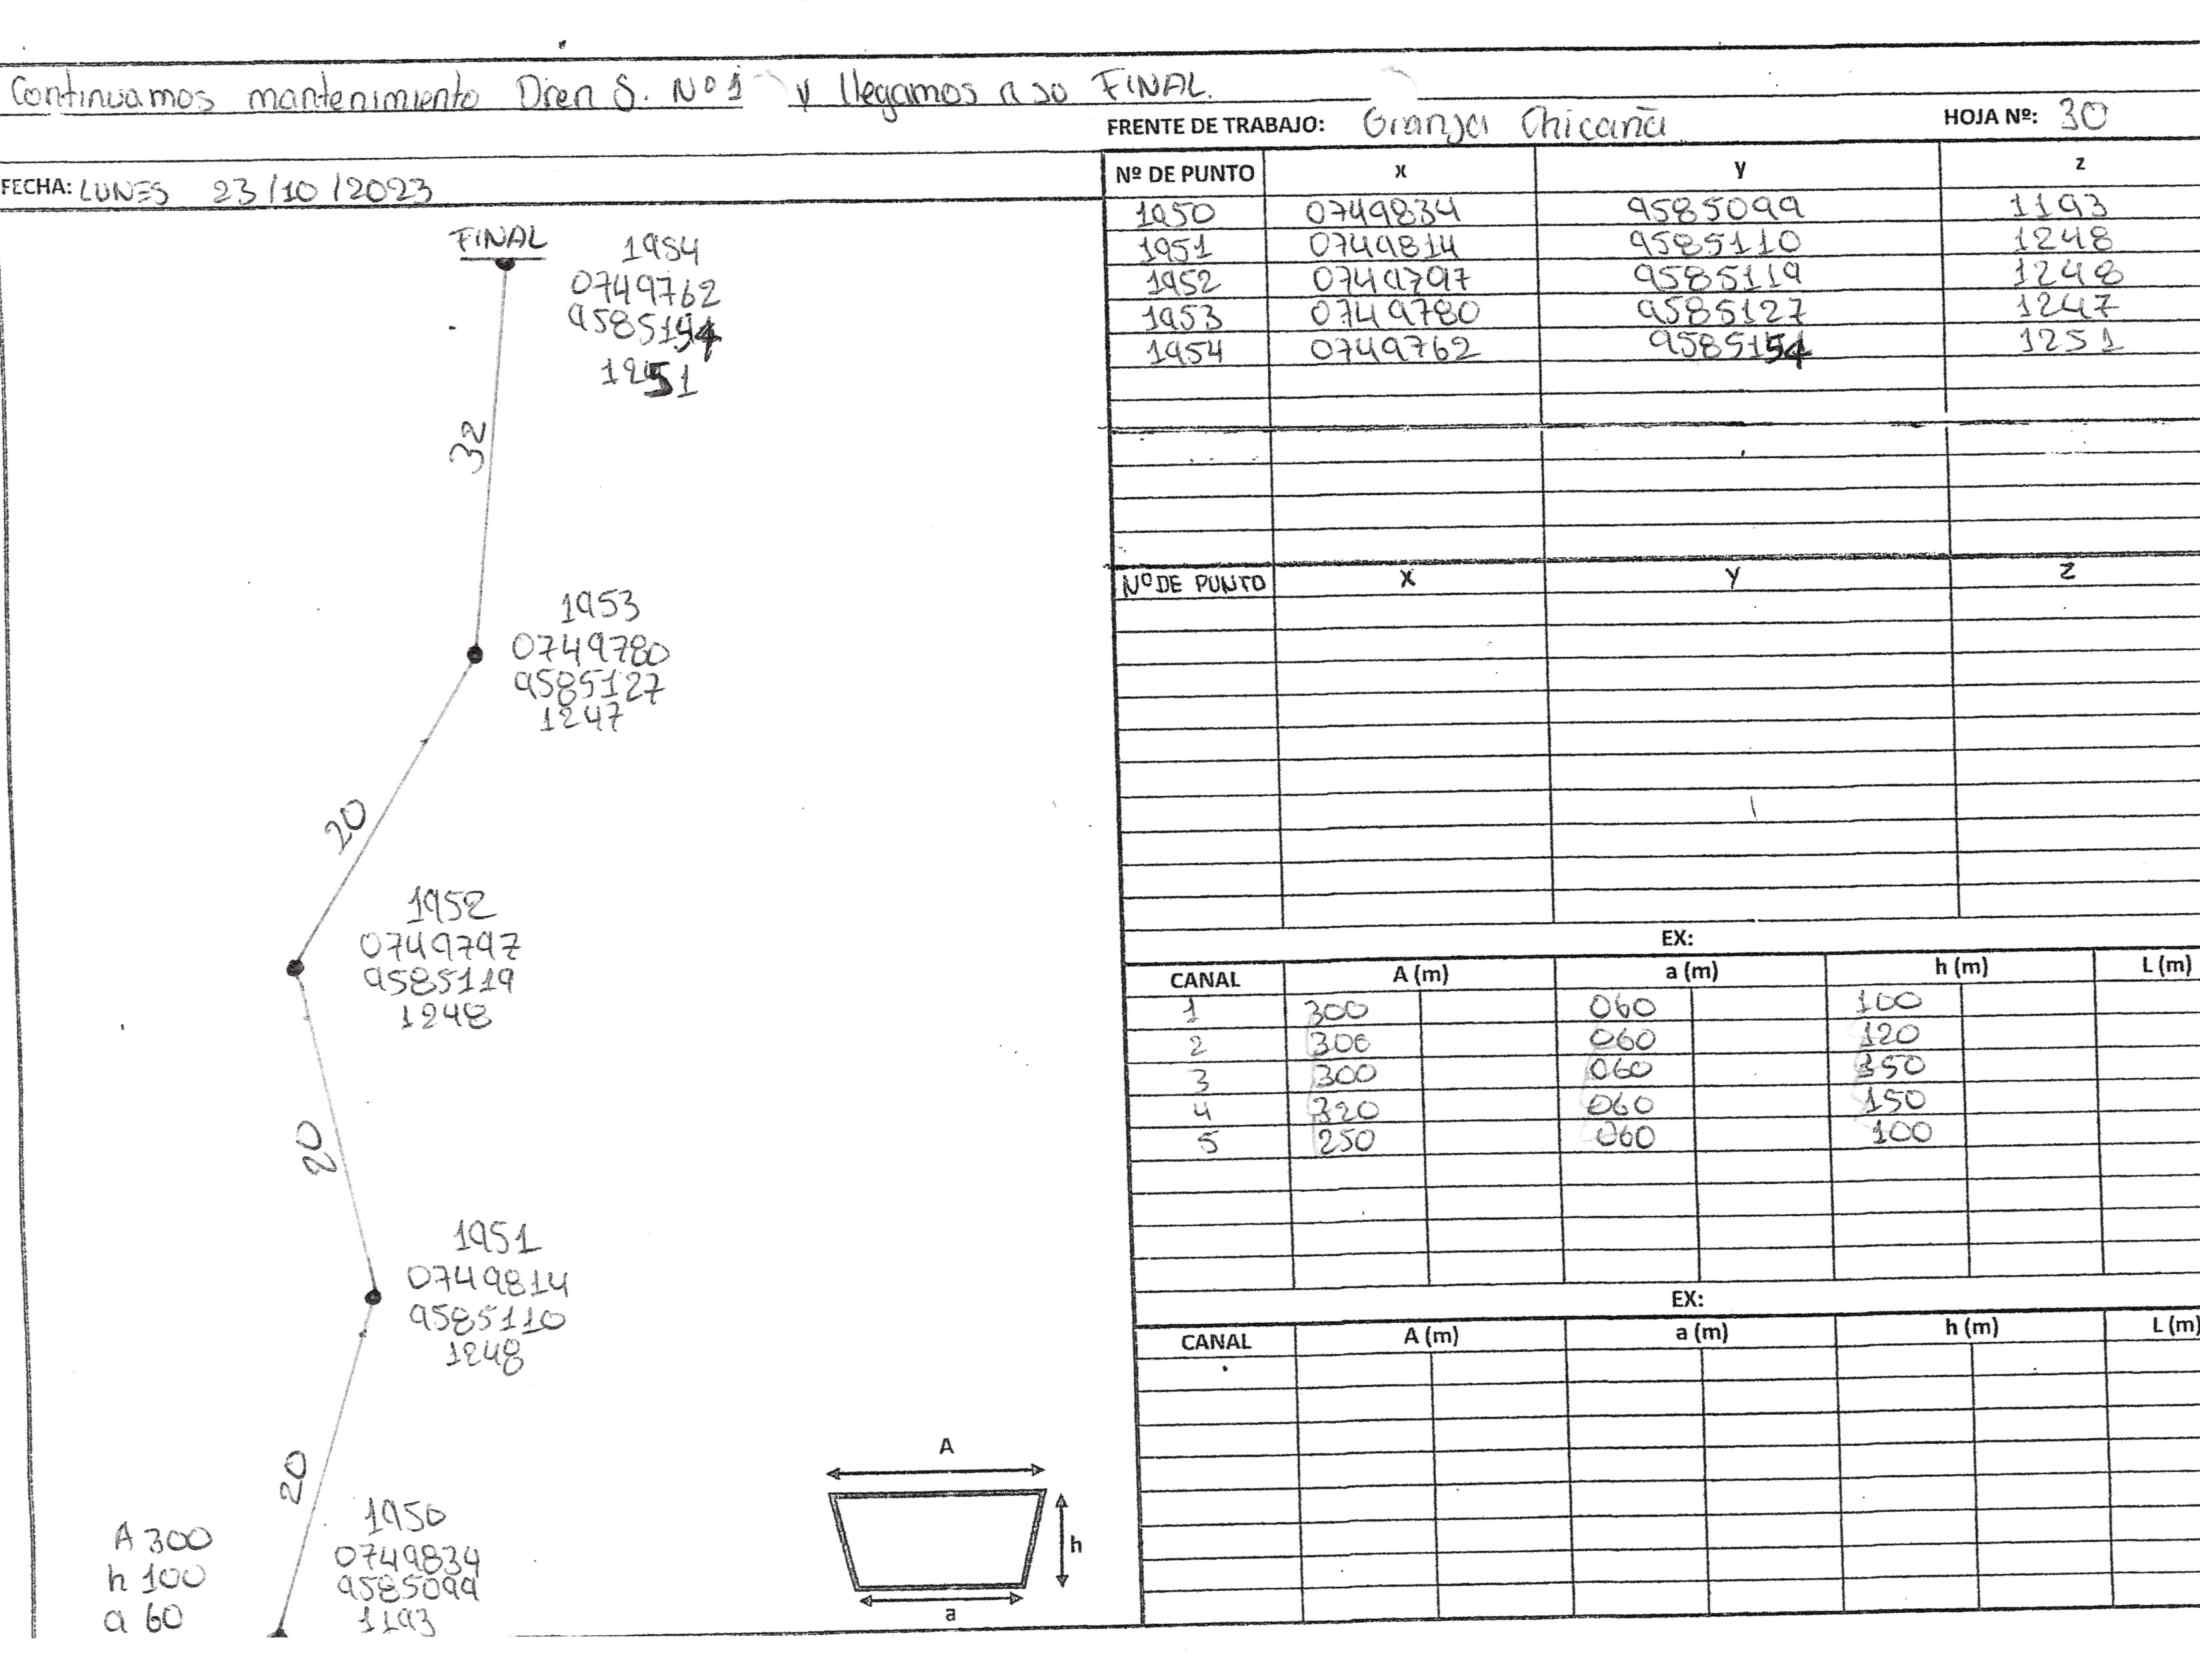 Continuamos mantenimiento Dren S. Nº1 y llegamos a su FINAL.
FRENTE DE TRABAJO: Granja Chicaña HOJA Nº: 30
FECHA: LUNES 23/10/2023
FINAL
1954
0749762
9585154
1251
32
1953
0749780
9585127
1247
20
1952
0749797
9585119
1248
20
1951
0749814
9585110
1248
20
1950
0749834
9585099
1193
A 300
h 100
a 60
A
h
a
Nº DE PUNTO x y z
1950 0749834 9585099 1193
1951 0749814 9585110 1248
1952 0749797 9585119 1248
1953 0749780 9585127 1247
1954 0749762 9585154 1251
Nº DE PUNTO X Y Z
EX:
CANAL A (m) a (m) h (m) L (m)
1 300 060 100
2 300 060 120
3 300 060 150
4 320 060 150
5 250 060 100
EX:
CANAL A (m) a (m) h (m) L (m)